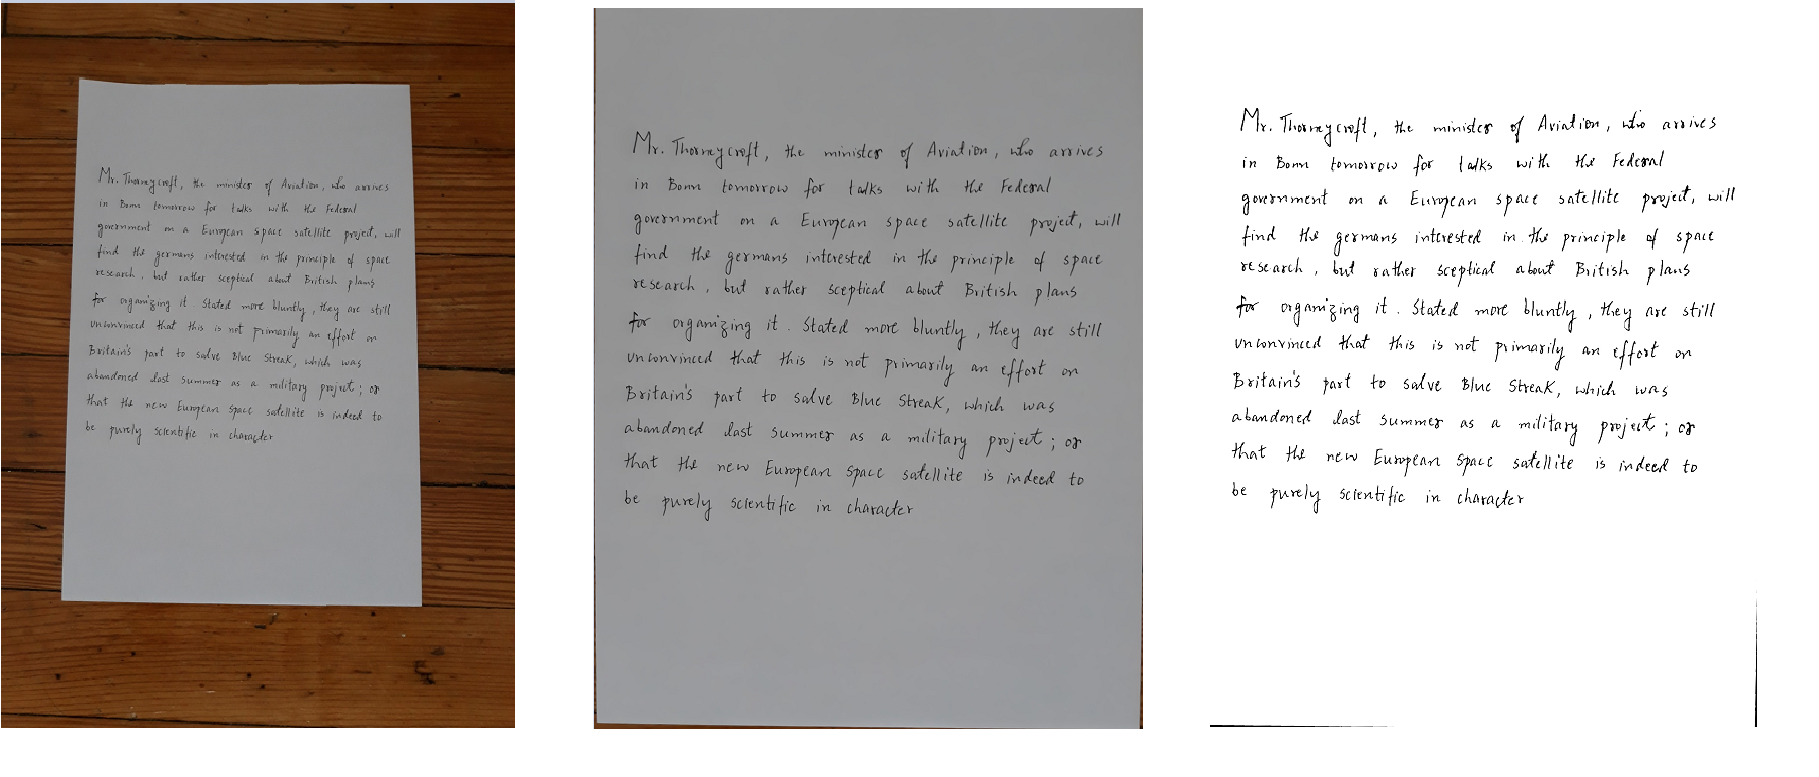 Mr. Thorneycroft, the minister of Aviation, who arrives
in Bonn tomorrow for talks with the Federal
government on a European space satellite project, will
find the germans interested in the principle of space
research, but rather sceptical about British plans
for organizing it. Stated more bluntly, they are still
unconvinced that this is not primarily an effort on
Britain's part to salve Blue Streak, which was
abandoned last summer as a military project; or
that the new European space satellite is indeed to
be purely scientific in character
Mr. Thorneycroft, the minister of Aviation, who arrives
in Bonn tomorrow for talks with the Federal
government on a European space satellite project, will
find the germans interested in the principle of space
research, but rather sceptical about British plans
for organizing it. Stated more bluntly, they are still
unconvinced that this is not primarily an effort on
Britain's part to salve Blue Streak, which was
abandoned last summer as a military project; or
that the new European space satellite is indeed to
be purely scientific in character
Mr. Thorneycroft, the minister of Aviation, who arrives
in Bonn tomorrow for talks with the Federal
government on a European space satellite project, will
find the germans interested in the principle of space
research, but rather sceptical about British plans
for organizing it. Stated more bluntly, they are still
unconvinced that this is not primarily an effort on
Britain's part to salve Blue Streak, which was
abandoned last summer as a military project; or
that the new European space satellite is indeed to
be purely scientific in character